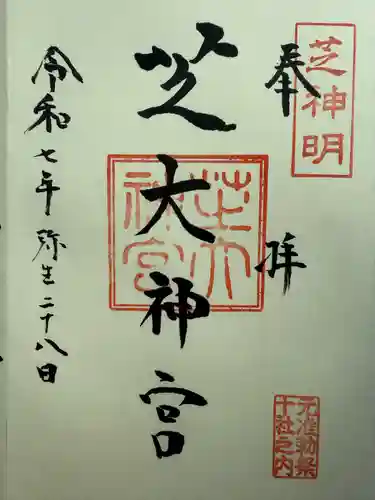 芝神明
奉拝
芝大神宮
芝大神宮
元准勅祭
十社之内
令和七年弥生二十八日